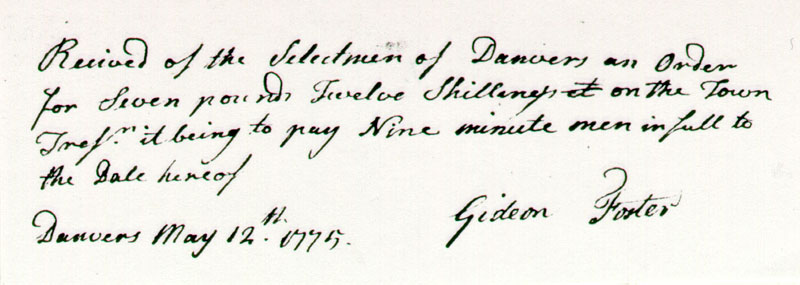 Recived of the Selectmen of Danvers an Order
for Seven pounds Twelve Shillings on the Town
Tresr. it being to pay Nine minute men in full to
the Date hereof
Danvers May 12th. 1775.
Gideon Foster